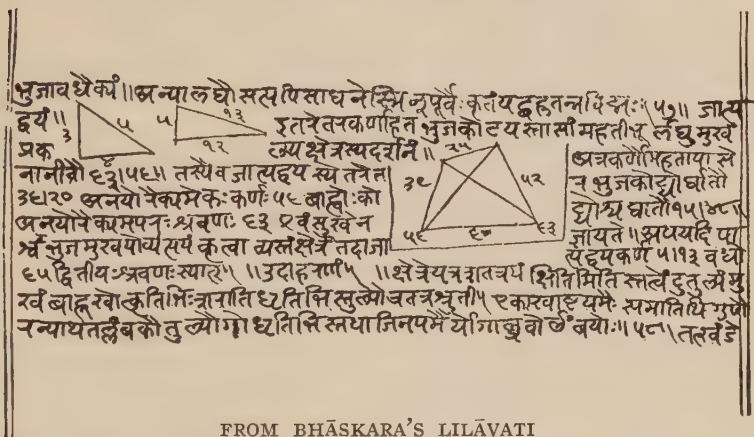 भुजावधैक्यं॥ अन्यालघौ सत्यपि साधनेस्मिन्पूर्वैः कृतं यद्गुरु तन्न विद्मः॥५७॥ जात्य
द्वयं॥
३ ५ ५ १३ १२
इतरेतरकर्णाहत भुजकोटयस्तासां महती भूर्लघुमुखं
प्रक
त्यक्षेत्रस्यदर्शनं॥
२५ ३९ ५२ ५६ ६३ ६०
अत्रकर्णौ महताया से
नानीतौ ६३।५६॥ तस्यैव जात्यद्वयस्य
त्र भुजकोट्योर्घातौ
३६।२० अनयोरैक्यमेकः कर्णः ५६ बाह्वोः को
ट्योश्च घातौ १५।४८।
अनयोरैक्यमपरः श्रवणः ६३ एवं सुखेन
जायेते॥
भुजमुखयोर्व्यत्ययं कृत्वा न्यस्तं क्षेत्रं तदा जा
त्यद्वयकर्ण ५।१३ वधो
६५ द्वितीयः श्रवणः स्यात्॥ ॥उदाहरणं॥ ॥क्षेत्रे यत्र शतत्रयं क्षितिमितिस्तत्त्वेंदुतुल्यं मु
खं बाहू खोत्कृतिभिः शरातिधृतिभिस्तुल्यौ च तत्र श्रुती। एका खाष्टयमैः समा तिथिगुणै
रन्याथ तल्लंबकौ तुल्यौ गोधृतिभिस्तथा जिनयमैर्योगाच्छ्रवोलंबयोः॥५८॥ तत्खंडे
FROM BHĀSKARA'S LILĀVATI